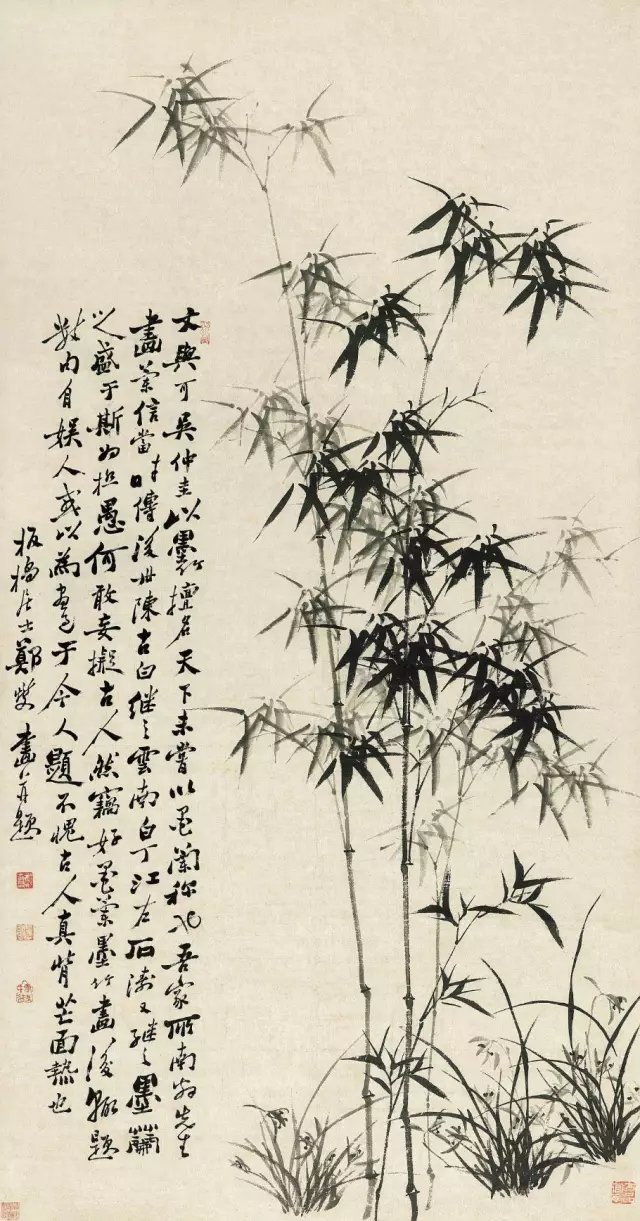 文與可吳仲圭以墨竹擅名天下未嘗以墨蘭稱也吾家所南翁先生
畫蘭信當時傳後世陳古白繼之雲南白丁江左石濤又繼之墨蘭
之盛于斯为极愚何敢妄擬古人然竊好墨蘭墨竹畫後輒題
數句自娛人或以為畫于今人題不愧古人真背芒面熱也
板橋居士鄭燮畫并題